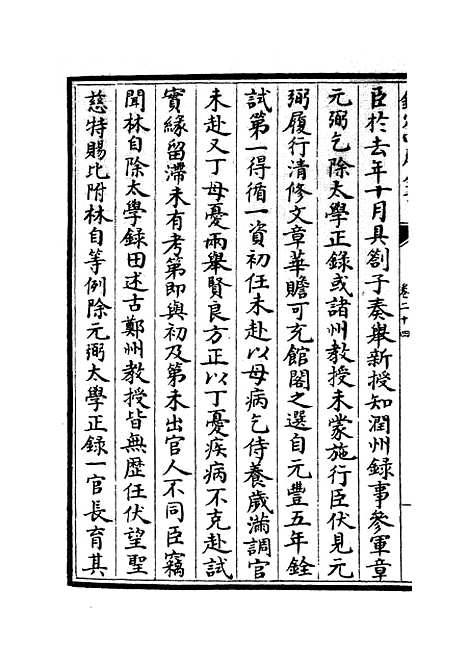 卷二十四
臣於去年十月具劄子奏舉新授知潤州録事參軍章
元弼乞除太學正録或諸州教授未䝉施行臣伏見元
弼履行清修文章華贍可充館閣之選自元豐五年銓
試第一得循一資初任未赴以母病乞侍養歲滿調官
未赴又丁母憂兩舉賢良方正以丁憂疾病不克赴試
實縁留滯未有考第即與初及第未出官人不同臣竊
聞林自除太學録田述古鄭州教授皆無歴任伏望聖
慈特賜比附林自等例除元弼太學正録一官長育其